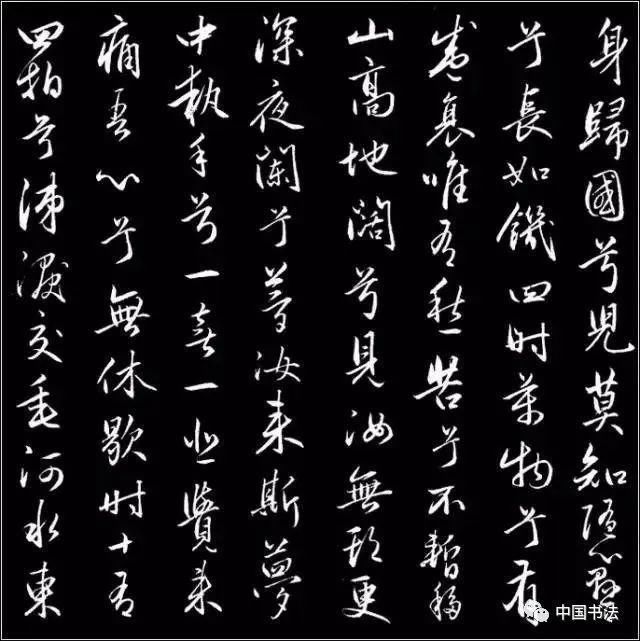 身歸國兮兒莫知隨心懸
兮長如饑四時萬物兮有
盛衰唯有愁苦兮不暫移
山高地闊兮見汝無期更
深夜闌兮夢汝來斯夢
中執手兮一喜一悲覺来
痛吾心兮無休歇時十有
四拍兮涕淚交垂河水東
中国书法